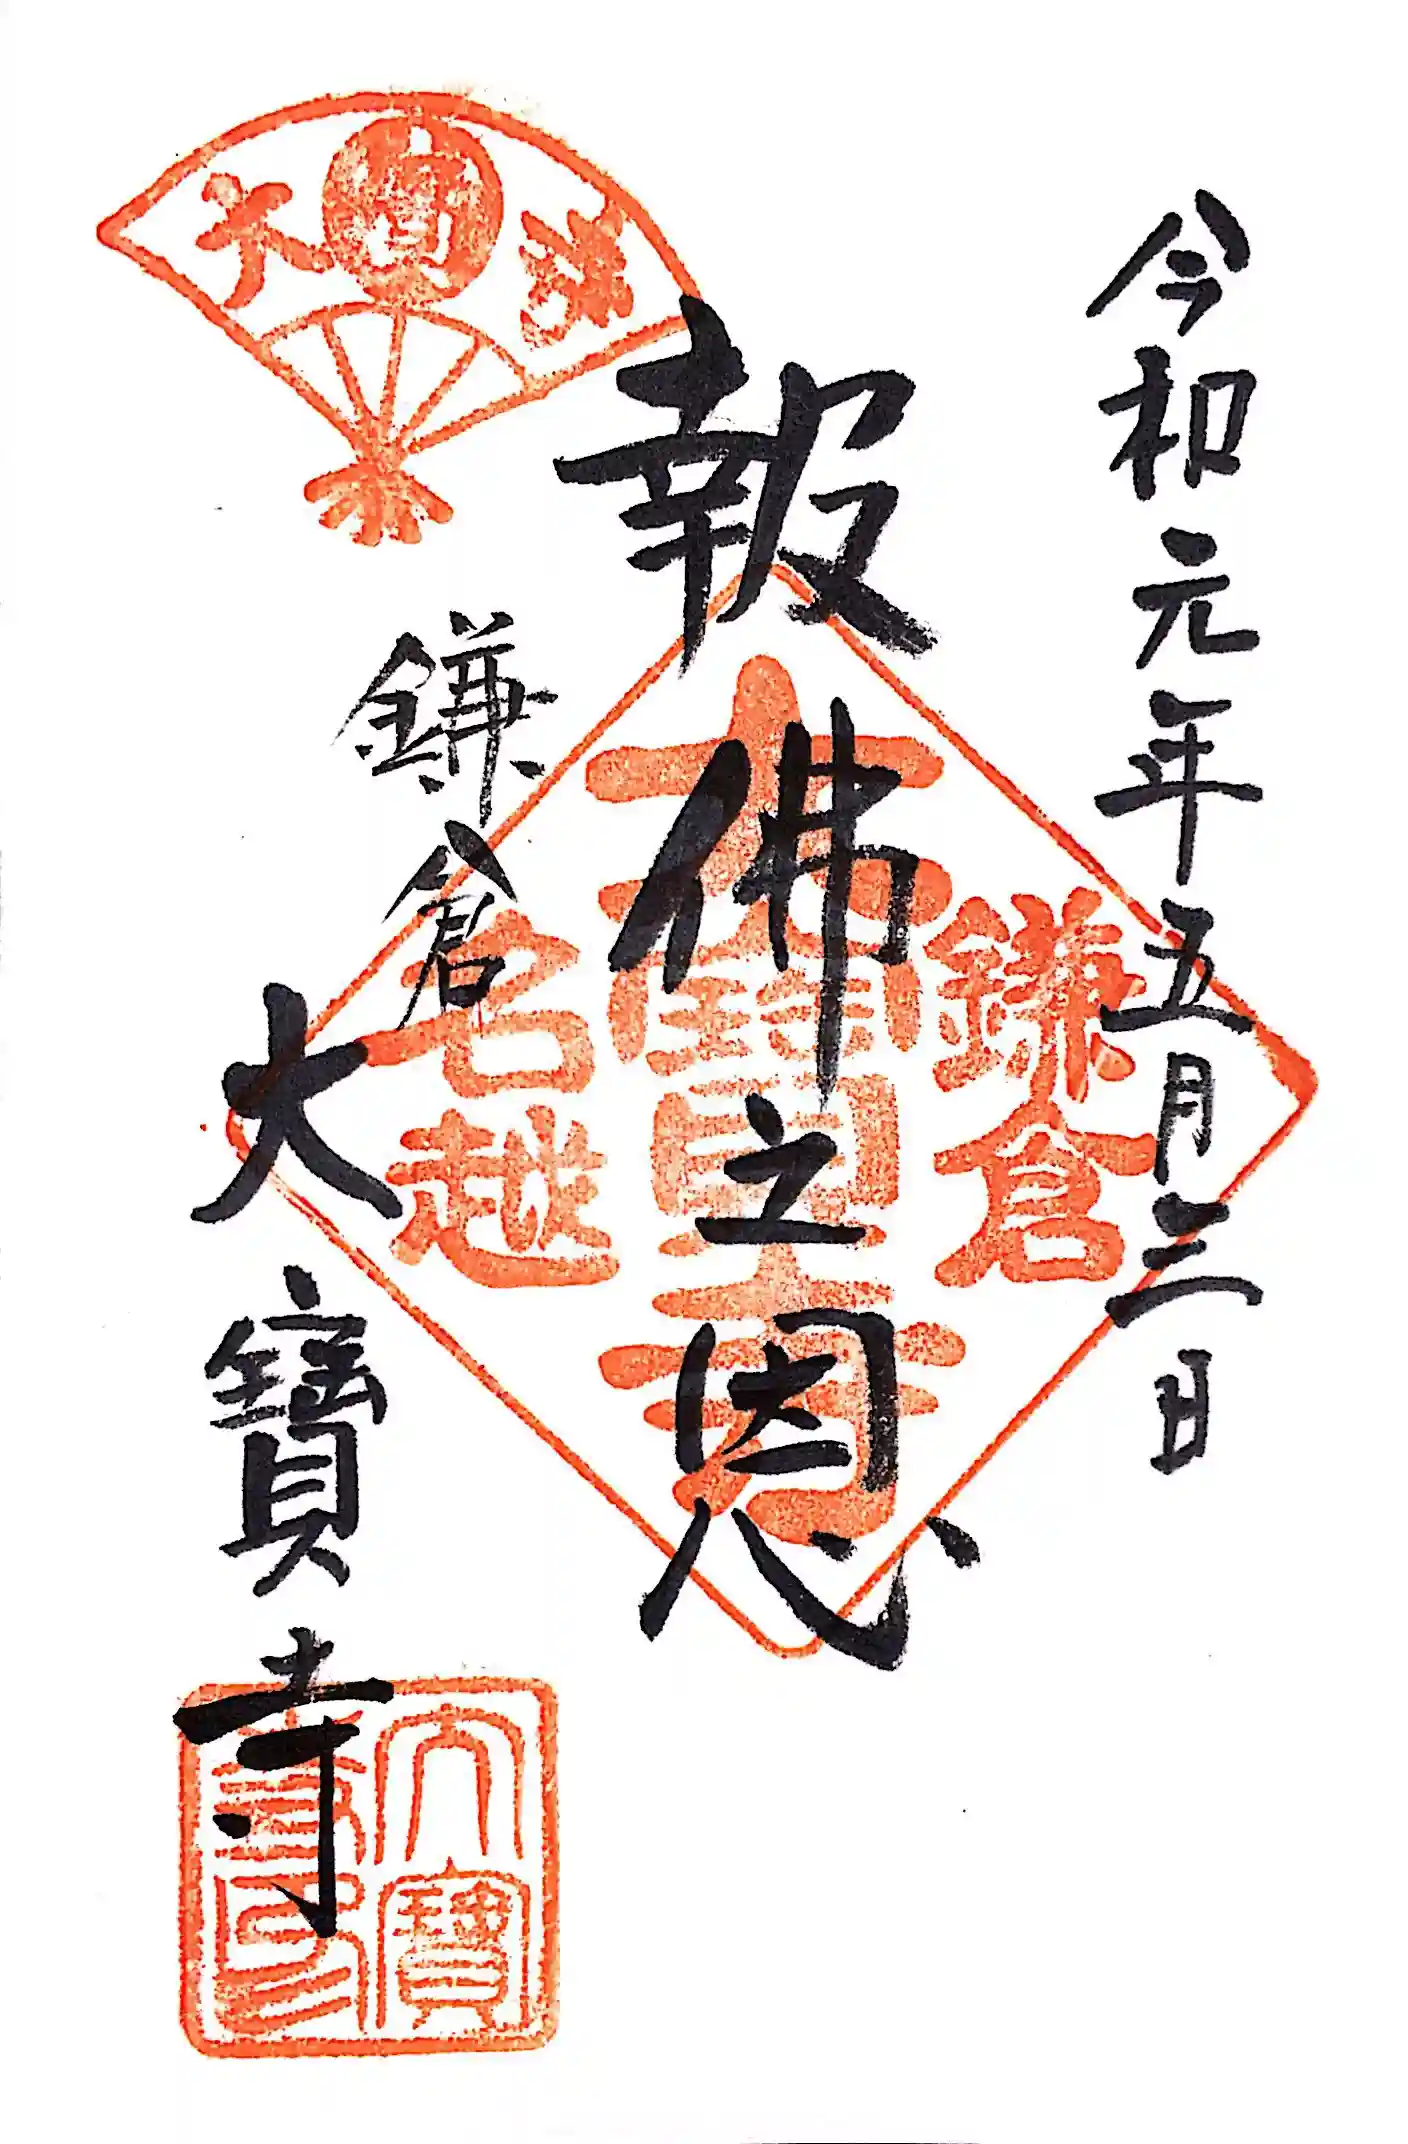 令和元年五月三日
報佛之恩
鎌倉
大寶寺
鎌倉
大寶寺
名越
大寶
寺印